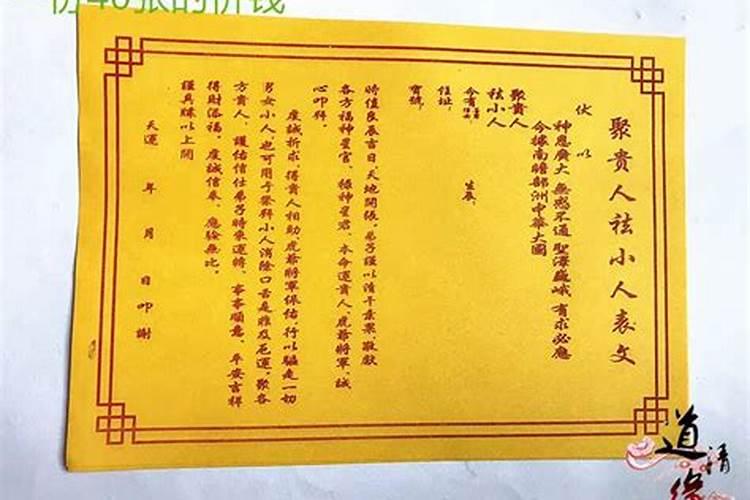 份40张的价钱
聚貴人祛小人表文
伏以
神恩廣大 無感不通 聖澤巍峨 有求必應
今據南瞻部洲中華大國
聚貴人
祛小人
今有
生辰
住址
寶號
時值良辰吉日，天地開張，弟子謹以清干素菓敬獻
各方福神星官，祿神星君，本命運貴人，虎爺將軍，誠
心叩拜。
虔誠祈求，得貴人相助虎爺將軍保佑行以驅走一切
男女小人也可用于祭拜小人消除口舌是非及厄運，聚各
方貴人，護佑信仕弟子時來運轉，事事順意，平安吉祥
得財添福。虔誠信奉，應驗無比。
謹具牒以上聞
天運 年 月 日叩謝
道
清
缘